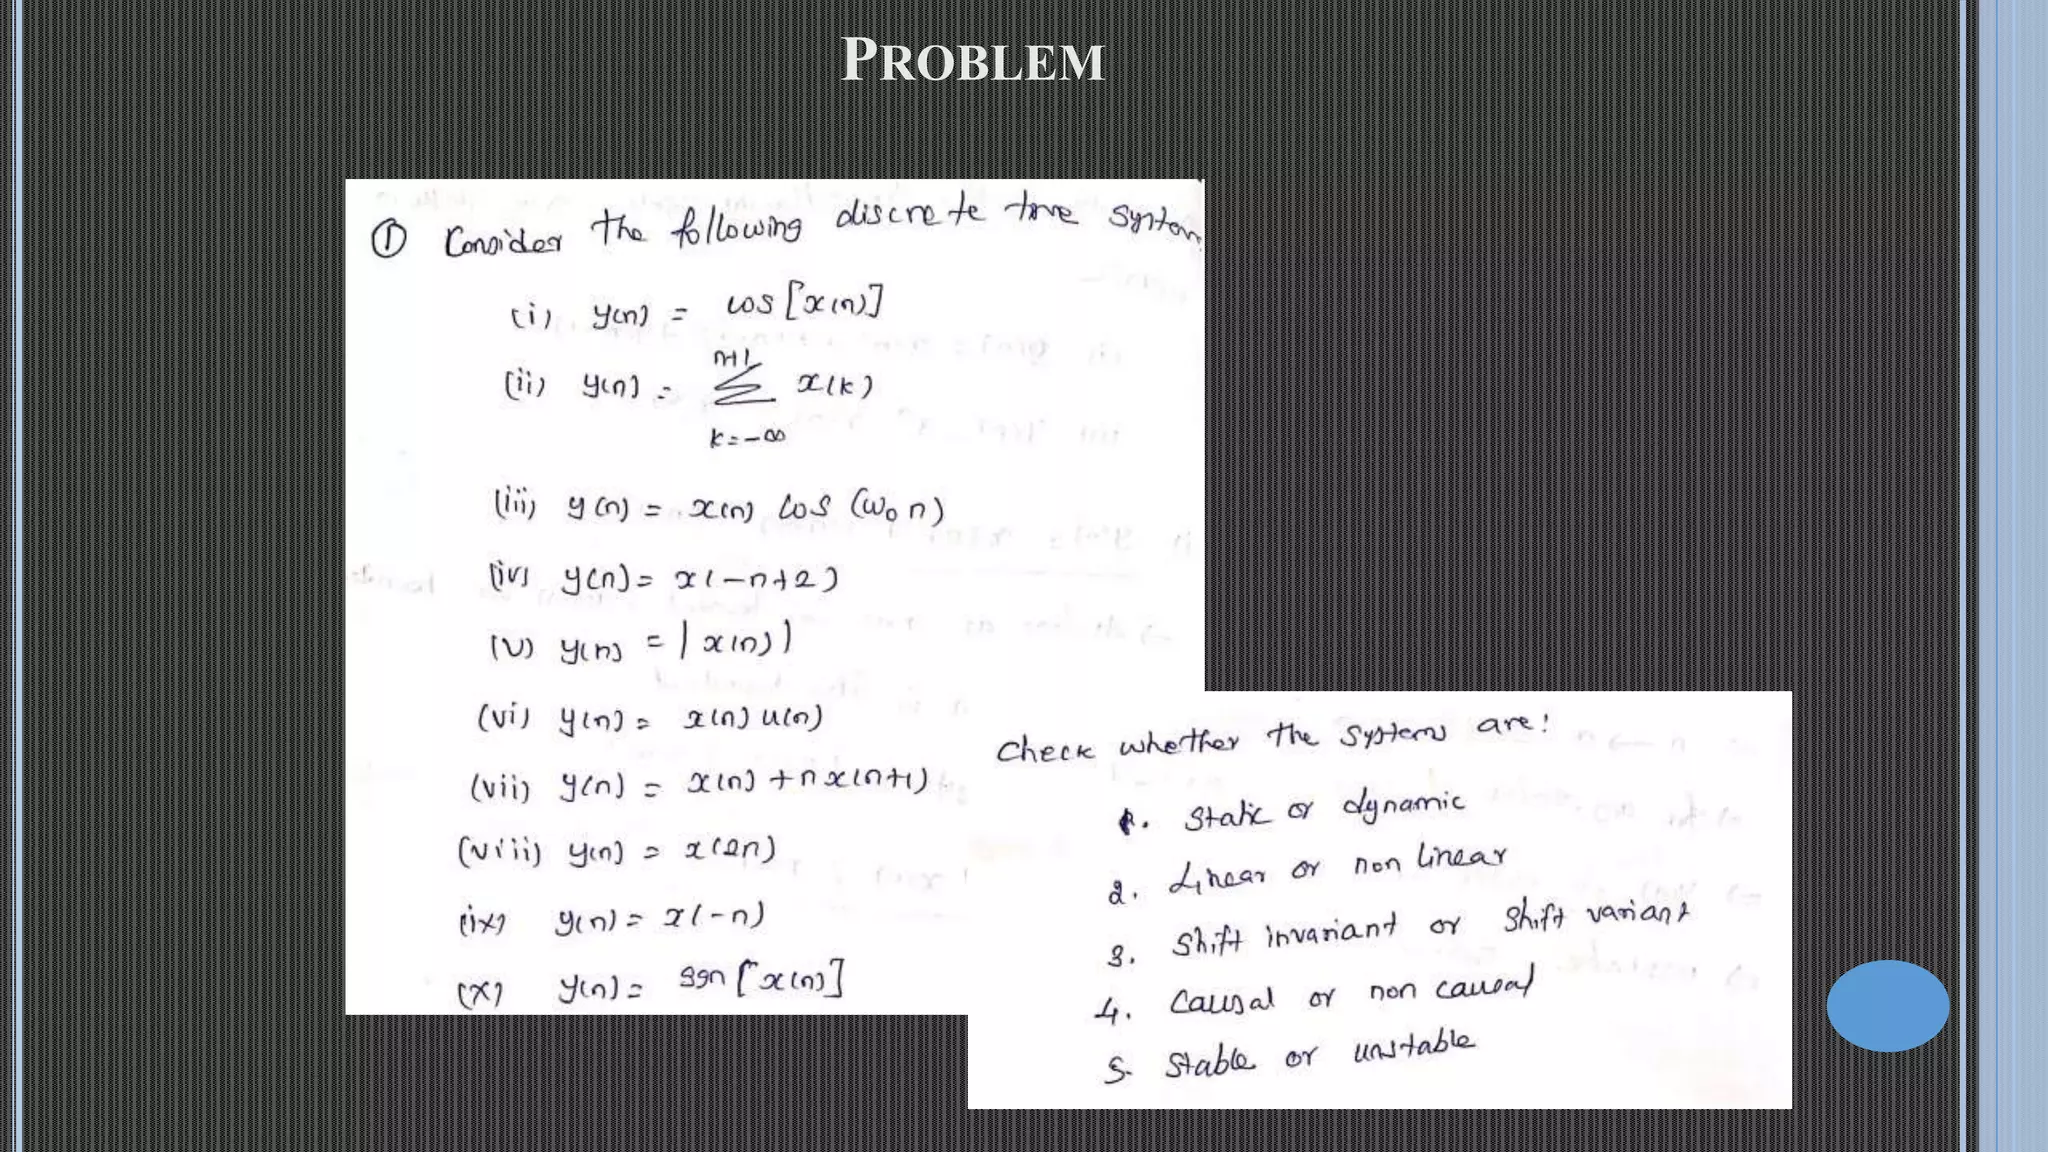 PROBLEM
① Consider the following discrete time system
(i) y(n) = cos [x(n)]
(ii) y(n) = n+1 Σ k=-∞ x(k)
(iii) y(n) = x(n) cos (ω₀ n)
(iv) y(n) = x(-n+2)
(v) y(n) = |x(n)|
(vi) y(n) = x(n) u(n)
(vii) y(n) = x(n) + n x(n+1)
(viii) y(n) = x(2n)
(ix) y(n) = x(-n)
(x) y(n) = sgn [x(n)]
Check whether the systems are:
1. Static or dynamic
2. Linear or non linear
3. Shift invariant or shift variant
4. Causal or non causal
5. Stable or unstable